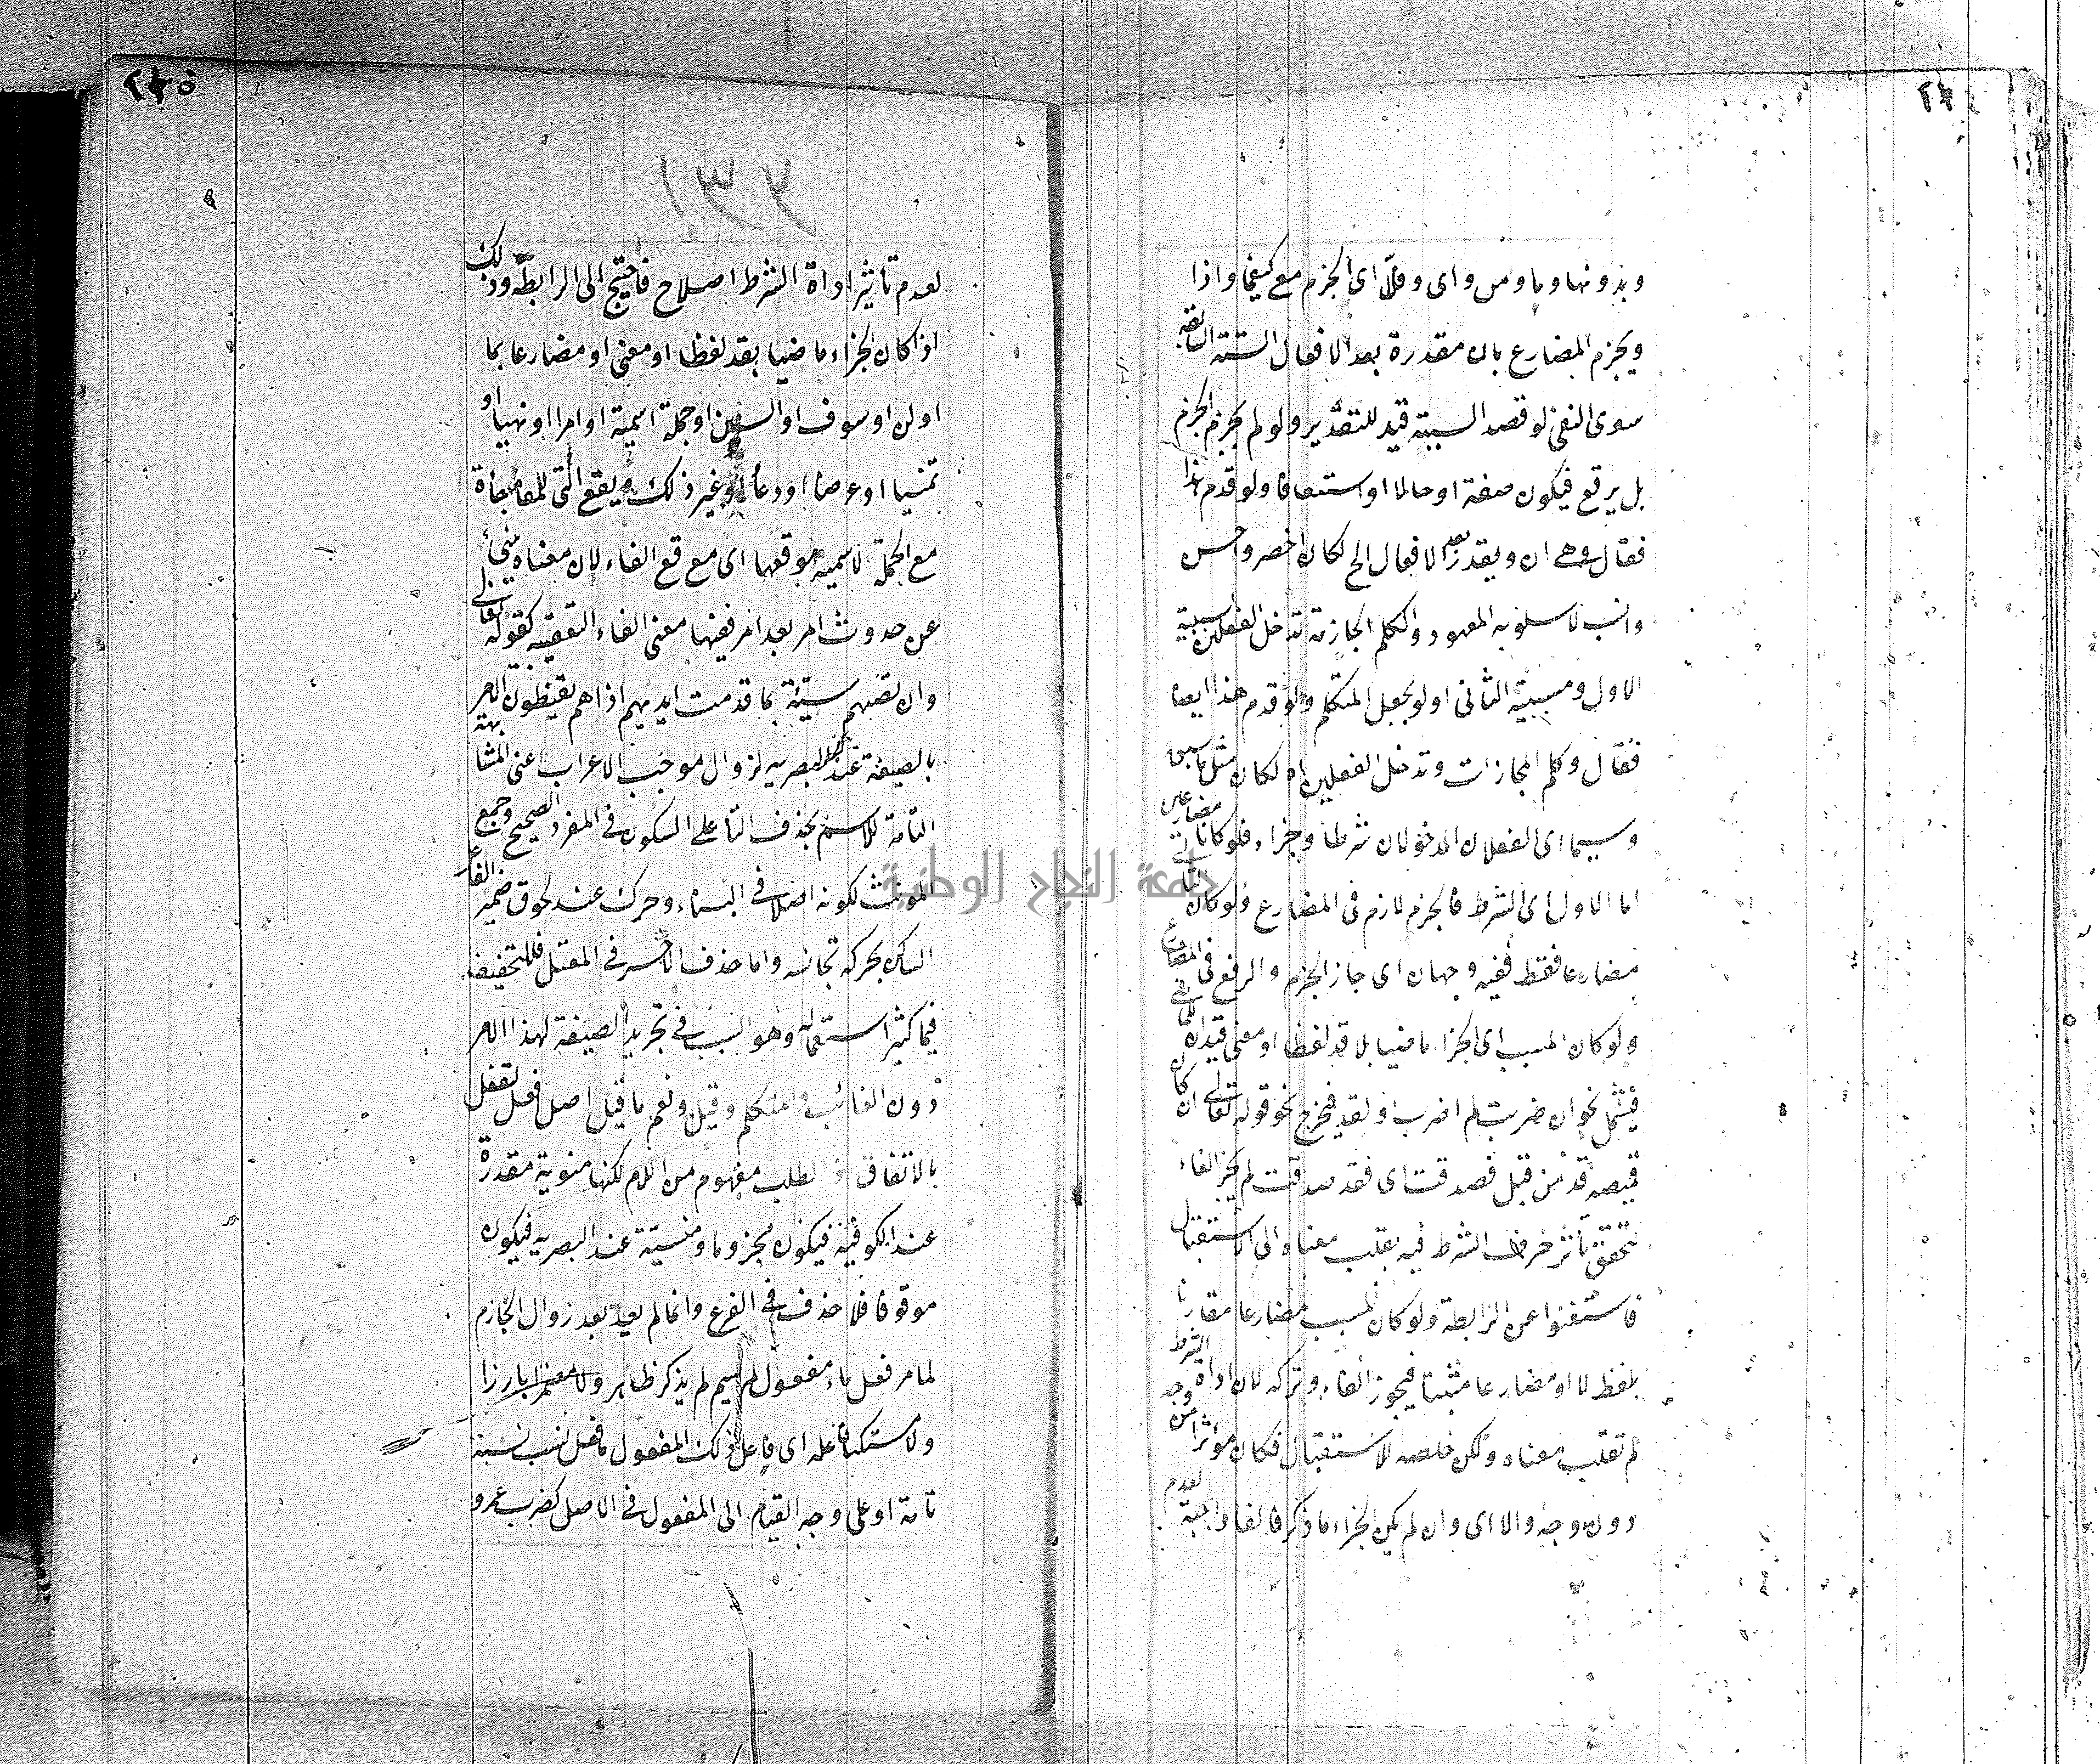 وبدونها وما ومن واى وقلّ اى الجزم مع كيفما واذا
ويجزم المضارع بان مقدرة بعد الافعال الستة السابقة
سوى النفى لو قصد السببية قيد للتقدير ولو لم يجزم الجزم
بل يرفع فيكون صفة او حالا او استئنافا ولو قدم هذا
فقال وهى ان ويقدر بعد الافعال الخ لكان اخصر واحسن
وانسب لاسلوبه المعهود والكلم الجازمة تدخل الفعلين لسببية
الاول ومسببية الثانى او لو بجعل المتكلم ولو قدم هذا ايضا
فقال وكلم المجازات وتدخل الفعلين اه لكان مثل ما سبق
وسيما اى الفعلان المدخولان شرطا وجزاء فلو كانا مضارعين
اما الاول اى الشرط فالجزم لازم فى المضارع ولو كان الثانى
مضارعا فقط ففيه وجهان اى جاز الجزم والرفع فى المضارع
ولو كان المسبب اى الجزاء ماضيا بلا قد لفظا او معنى قيد
فيشمل نحو ان ضربت لم اضرب او لقد فخرج نحو قوله تعالى ان كان
قميصه قد من قبل فصدقت اى فقد صدقت لم يجز الفاء
لتحقق تأثير حرف الشرط فيه بقلب معناه الى الاستقبال
فاستغنوا عن الرابطة ولو كان المسبب مضارعا مقارنا
بلفظ لا او مضارعا مثبتا فيجوز الفاء وتركه لان اداة الشرط
لم تقلب معناه ولكن خلصه للاستقبال فكان مؤثرا من وجه
دون وجه والا اى وان لم يكن الجزاء ما ذكر فالفاء واجبة لعدم
جامعة النجاح الوطنية
٢٤٥
لعدم تأثير اداة الشرط اصلا فاحتيج الى الرابطة وذلك
اذا كان الجزاء ماضيا بقد لفظا او معنى او مضارعا بما
او لن او سوف او السين او جملة اسمية او امرا او نهيا او
تمنيا او عرضا او دعاء او غير ذلك ويقع التى للمفاجأة
مع الجملة الاسمية موقعها اى موقع الفاء لان معناه منبئ
عن حدوث امر بعد امر ففيها معنى الفاء التعقيبية كقوله تعالى
وان تصبهم سيئة بما قدمت ايديهم اذا هم يقنطون الامر
بالصيغة عند البصرية لزوال موجب الاعراب اعنى المشابهة
التامة للاسم بحذف التاء على السكون فى المفرد الصحيح وجمع
المونث لكونه اصلا فى البناء وحرك عند لحوق ضمير الفاعل
الساكن بحركة تجانسه واما حذف الآخر فى المعتل فللتخفيف
فيما كثير استعماله وهو السبب فى تجريد الصيغة لهذا الامر
دون الغائب والمتكلم وقيل ونعم ما قيل اصل افعل لتفعل
بالاتفاق فالطلب مفهوم من اللام لكنها منوية مقدرة
عند الكوفية فيكون مجزوما ومنسية عند البصرية فيكون
موقوفا فلا حذف فى الفرع وانما لم يعد بعد زوال الجازم
لما مر فعل ماء مفعول لم يسم لم يذكر ظاهر ولا مضمرا بارزا
ولا مستكنا فاعله اى فاعل ذلك المفعول ما فعل نسب نسبة
تامة او على وجه القيام الى المفعول فى الاصل كضرب عمرو